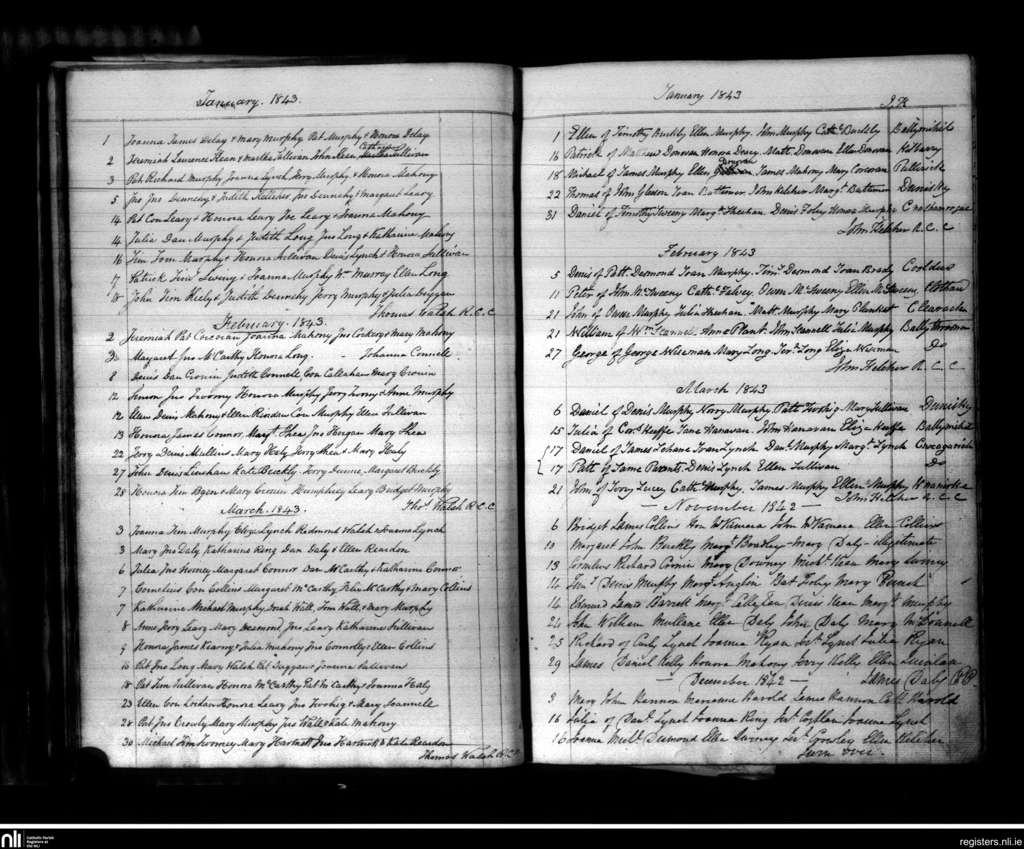 January. 1843.
1 Joanna James Delay & Mary Murphy Pat Murphy & Honora Delay
2 Jeremiah Laurence Kean & Martha Sullivan John Kean Catherine Sullivan
3 Pat Richard Murphy Joanna Lynch Jerry Murphy & Honora Mahony
5 Jno Jno Dennehy & Judith Kelleher Jno Dennehy & Margaret Leary
14 Pat Con Leary & Honora Leary Joe Leary & Joanna Mahony
14 Julia Dan Murphy & Judith Long Jno Long & Katharine Mahony
16 Tim Tom Murphy & Honora Sullivan Denis Lynch & Honora Sullivan
7 Patrick Timy Sweeny & Joanna Murphy Wm Murray Ellen Long
John Tim Kiely & Judith Dennehy Jerry Murphy & Julia Duggan
Thomas Walsh R.C.C
February. 1843.
2 Jeremiah Pat Corcoran Joanna Mahony Jno Corkery & Mary Mahony
3 Margaret Jno McCarthy Honora Long. - Johanna Connell
8 Denis Dan Cronin Judith Connell, Con Callaghan & Mary Cronin
12 Simon Jno Twomy Honora Murphy Jerry Twomy & Anne Murphy
12 Ellen Denis Mahony & Ellen Riordan Con Murphy Ellen Sullivan
13 Honora James Connor, Mary Shea Jno Horgan Mary Shea
22 Jerry Denis Mullins Mary Healy Jerry Shea & Mary Healy
27 John Denis Linehan Kate Buckly Jerry Dunne, Margaret Buckly
28 Honora Tim & Mary Cronin Humphrey Leary Bridget Murphy
Thos. Walsh R.C.C
March. 1843.
3 Joanna Tim Murphy Eliza Lynch Redmond Walsh & Joanna Lynch
3 Mary Jno Daly Katharine King Dan Daly & Ellen Reardon
6 Julia Jno Margaret Connor Dan McCarthy & Katharine Connor
7 Cornelius Con Collins Margaret McCarthy Felix McCarthy & Mary Collins
7 Katharine Michael Murphy, Walsh, Tom Walsh, & Mary Murphy
8 Anne Jerry Leary Mary Desmond, Jno Leary Katharine Sullivan
9 Honora James Kearny & Julia Mahony Jno Connolly & Ellen Collins
10 Pat Jno Long Mary Walsh Pat Duggan & Joanna Sullivan
18 Pat Tim Sullivan Honora McCarthy Pat McCarthy & Joanna Healy
23 Ellen Con Honora Leary Jno Twohig & Mary Scannell
28 Pat Jno Crowly Mary Murphy Jno Walsh & Kate Mahony
30 Michael Tim Twomey Mary Hartnett Jno Hartnett & Kate Reardon
Thomas Walsh R.C.C
January 1843
1 Ellen of Timothy Buckley Ellen Murphy. John Murphy Cathe. Buckley
16 Patrick of Matthew Donovan Honora Deasy Matt Donovan Ellen Donovan Kilbarry
18 Michael of James Murphy Ellen James Mahony Mary Corcoran
22 Thomas of John Gleeson Joan Bateman John Kelcher Margt. Bateman Dunisky
31 Daniel of Timothy Sweeny Margt. Sheehan Denis Foley Honora Murphy
John Kelcher R.C.C
February 1843
5 Denis of Patt. Desmond Joan Murphy. Timy. Desmond Joan Brady Cooldus
11 Peter of John McSweeny Cathe. Falvey. Owen McSweeny Ellen McSweeny
21 John of Owen Murphy Julia Sheehan Matt. Murphy Mary Plunket
21 William of Wm. Scannell Anne Plant. John Scannell Julia Murphy
27 George of George Wiseman Mary Long Jery. Long Eliza Wiseman Do
John Kelcher R.C.C
March 1843
6 Daniel of Denis Murphy Norry Murphy Patt Twohig Mary Sullivan Dunisky
15 Julia of Cors. Keeffe Jane Hanavan. John Hanavan Eliza Keeffe
17 Daniel of James Lehane Joan Lynch Danl. Murphy Margt. Lynch
17 Patt of Same Parents. Denis Lynch Ellen Sullivan Do
21 John of Jerry Lucey Cathe. Murphy. James Murphy Ellen Murphy
John Kelcher R.C.C
- November 1842 -
6 Bridget James Collins Hon McNamara John McNamara Ellen Collins
10 Margaret John Buckley Margt. Bradley - Mary Daly - illegitimate
13 Cornelius Richard Cronin Mary Downey Michl. Kean Mary
14 Denis Murphy Mary Anglin Bat Foley Mary
14 Edward James Barrett Margt. Callaghan Denis Kean Margt. Murphy
24 John William Mullane Ellen Daly John Daly Mary McDonnell
25 Richard of Lynch Joanna Ryan Lynch Julia Ryan
29 James Daniel Kelly Honora Mahony Jerry Kelly Ellen Quinlan
- December 1842 - James Daly
3 Mary John Hannon Marianne Harold James Hannon Cath Harold
16 Julia of Danl. Lynch Joanna King Joanna Lynch
16 Joanna Michl. Desmond Ellen Crowley Ellen Kelcher
turn over
nli
Catholic Parish
Registers at
the NLI
registers.nli.ie